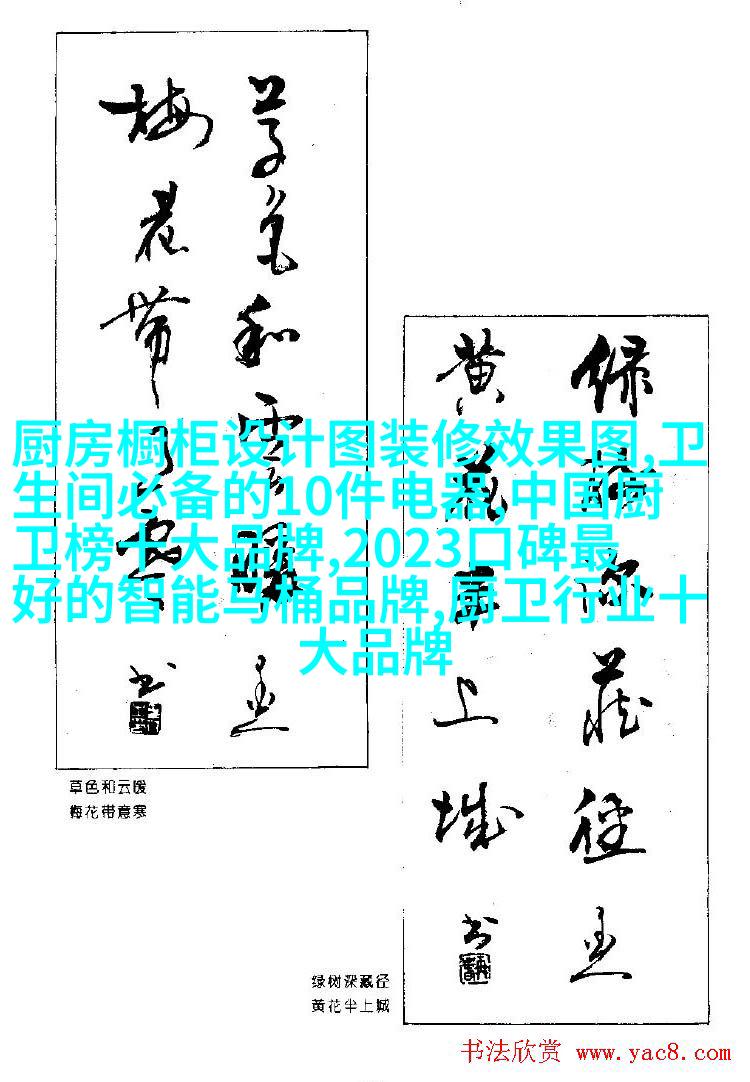 梅花带
草色和云暖
黄花半上城
绿树深藏径
厨房橱柜设计图装修效果图,卫
生间必备的10件电器,中国厨
卫榜十大品牌,2023口碑最
好的智能马桶品牌,厨卫行业十
大品牌
草色和云暖
梅花带意寒
绿树深藏径
黄花半上城
书法欣赏 www.yac8.com